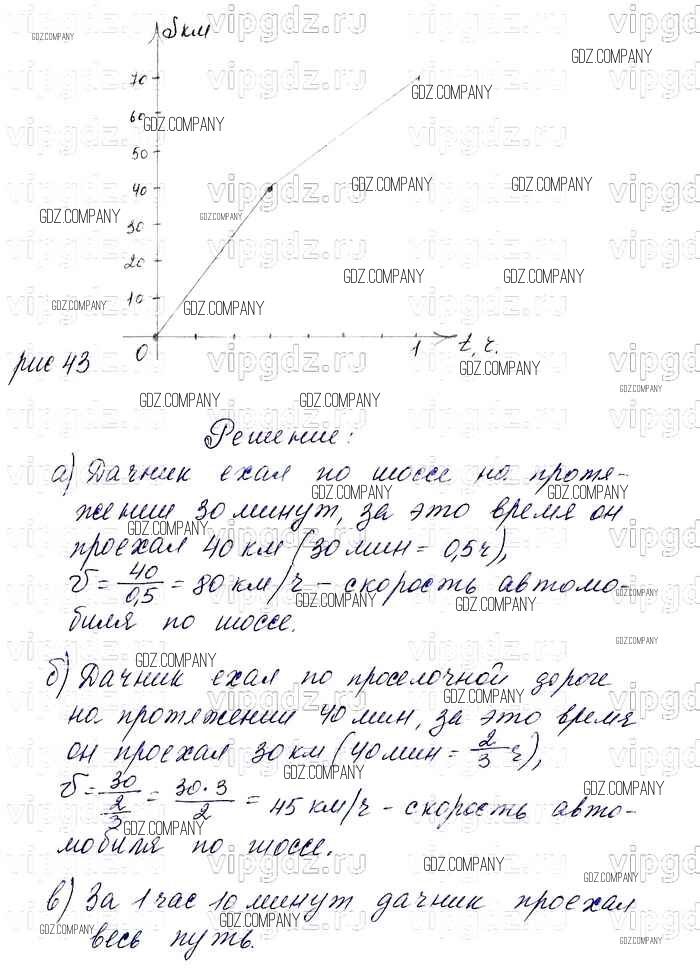 S км
70
60
50
40
30
20
10
0 1 t, ч.
рис 43
Решение:
а) Дачник ехал по шоссе на протя-
жении 30 минут, за это время он
проехал 40 км (30 мин = 0,5 ч),
v = 40/0,5 = 80 км/ч – скорость автомо-
биля по шоссе.
б) Дачник ехал по проселочной дороге
на протяжении 40 мин, за это время
он проехал 30 км (40 мин = 2/3 ч),
v = 30/(2/3) = 30·3/2 = 45 км/ч – скорость авто-
мобиля по шоссе.
в) За 1 час 10 минут дачник проехал
весь путь.
GDZ.COMPANY
vipgdz.ru